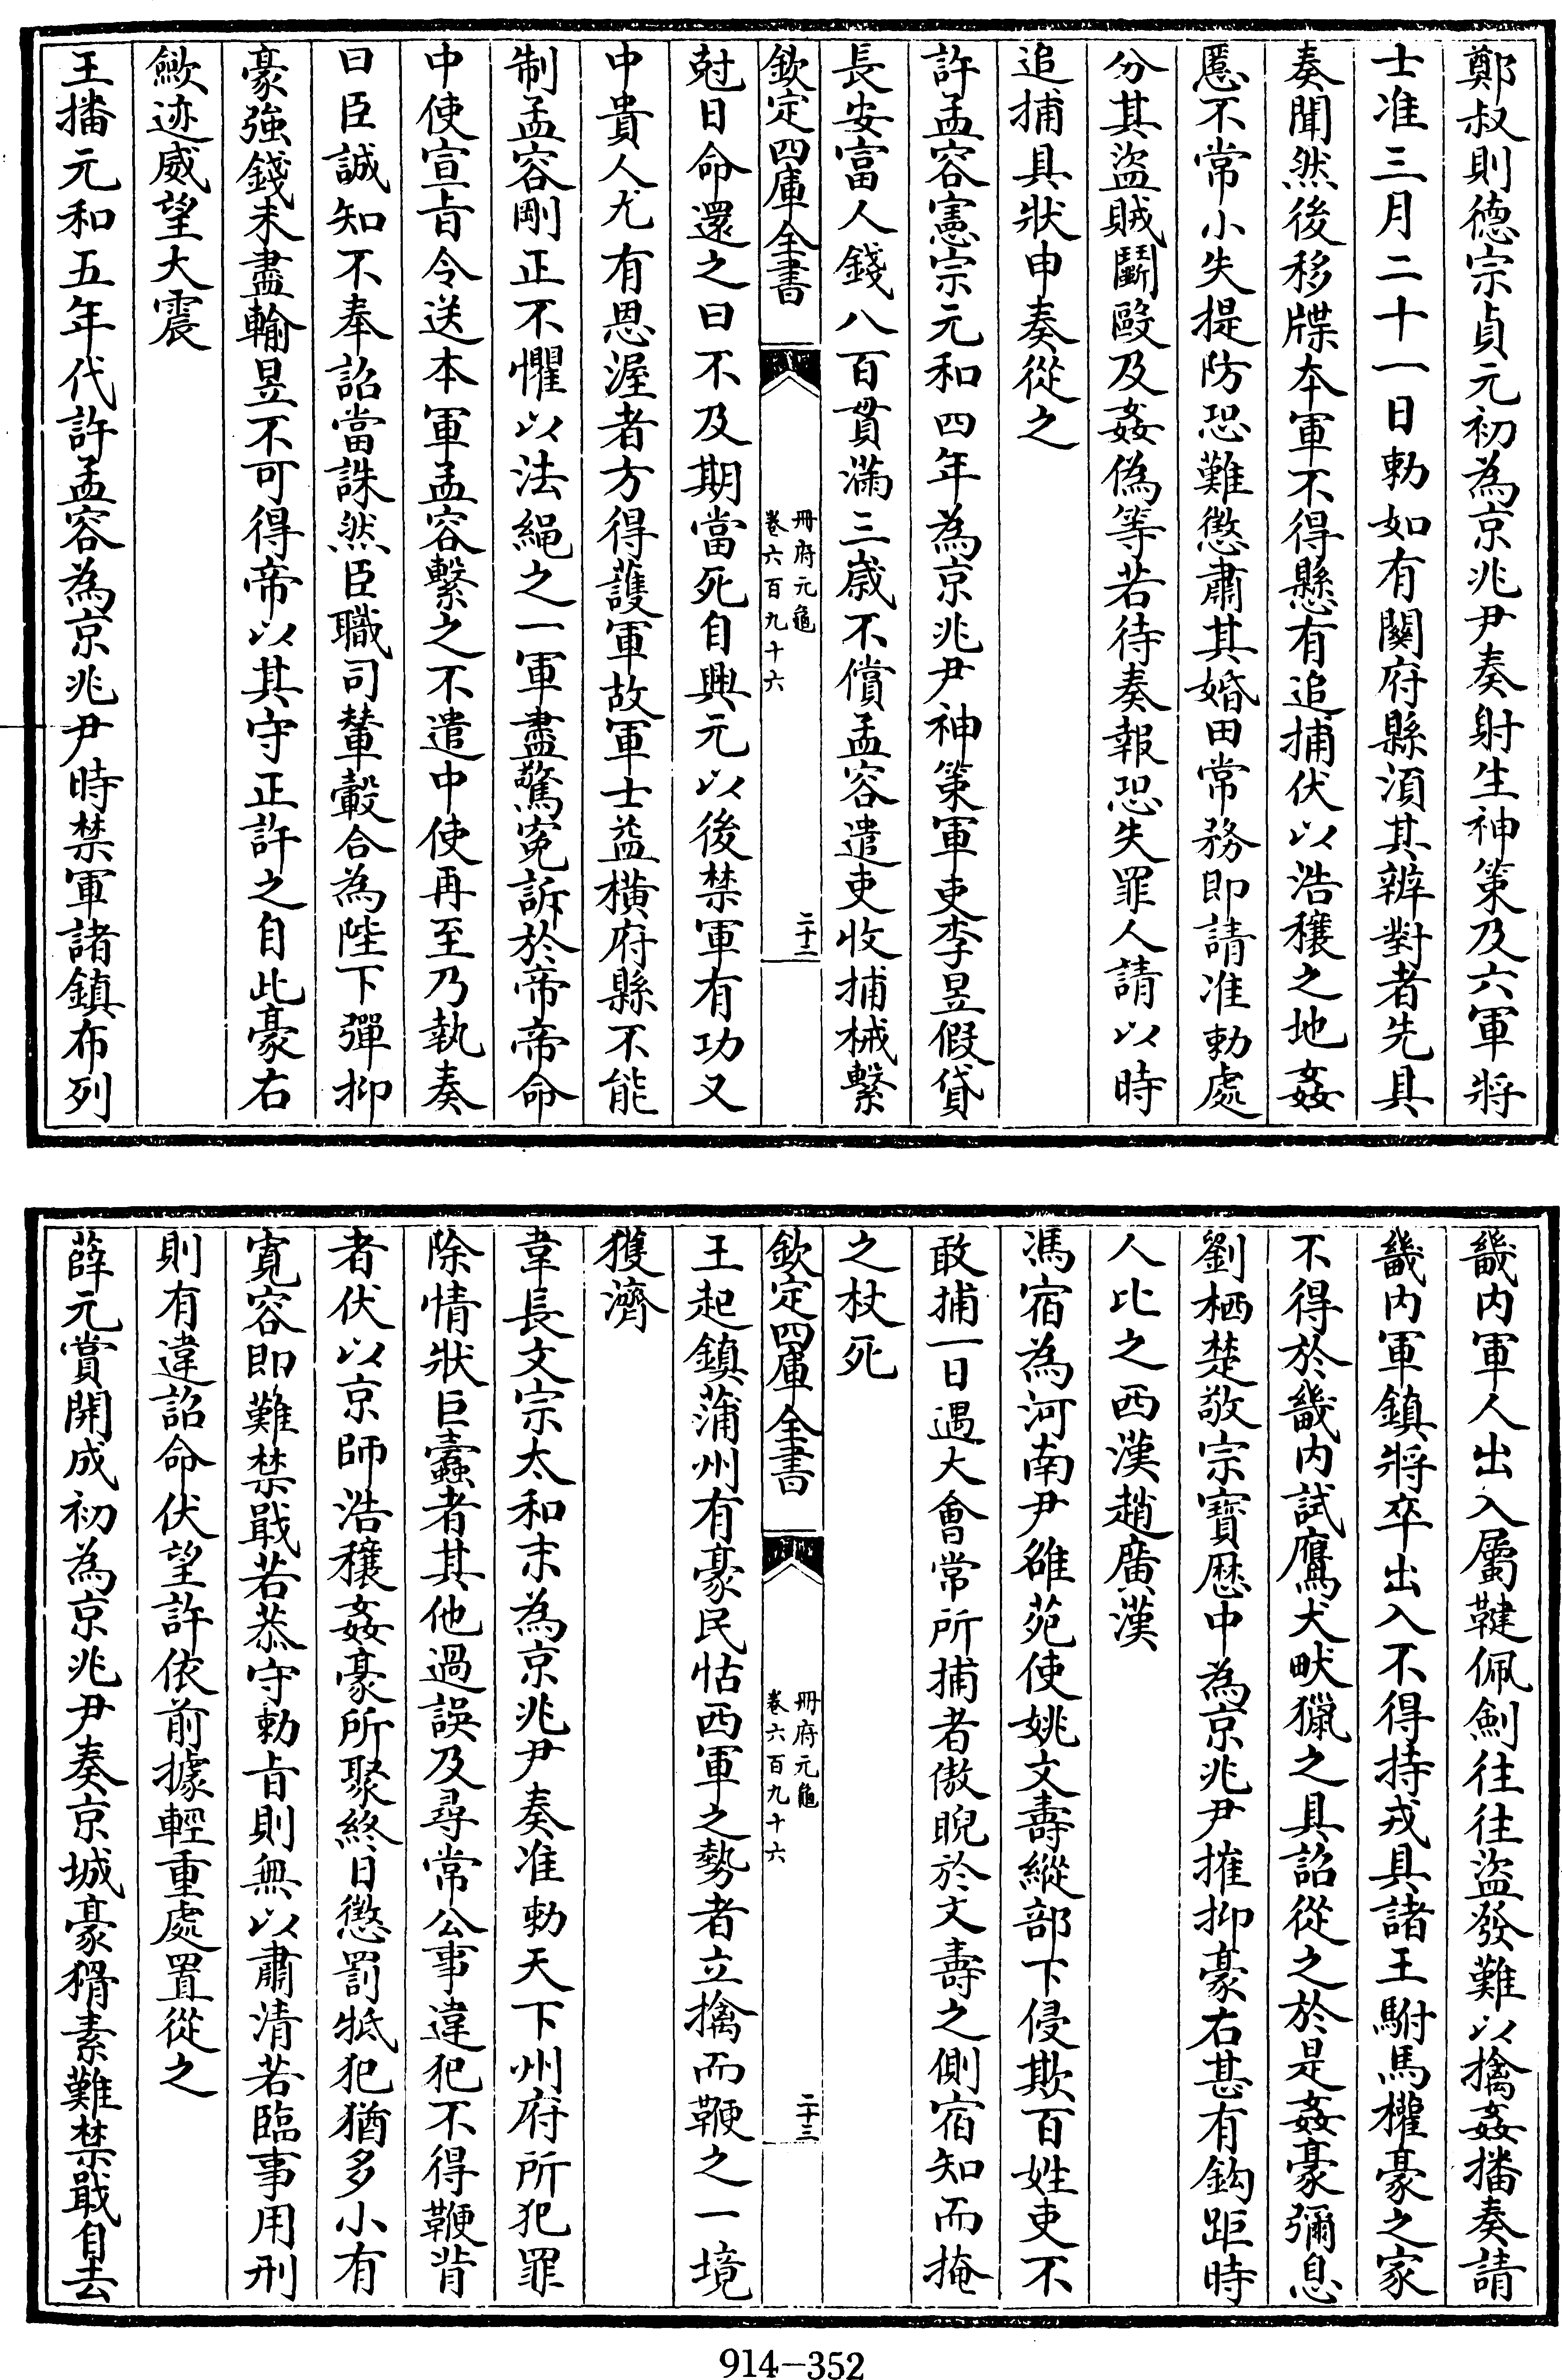 鄭叔則德宗貞元初為京兆尹奏射生神策及六軍將
士准三月二十一日勅如有關府縣湏其辨對者先具
奏聞然後移牒本軍不得懸有追捕伏以浩穰之地姦
慝不常小失提防恐難懲肅其婚田常務即請准勅處
分其盜賊鬭毆及姦偽等若待奏報恐失罪人請以時
追捕具狀申奏從之
許孟容憲宗元和四年為京兆尹神策軍吏李昱假貸
長安富人錢八百貫滿三歲不償孟容遣吏收捕械繫
欽定四庫全書
冊府元龜
卷六百九十六
二十二
尅日命還之曰不及期當死自興元以後禁軍有功又
中貴人尤有恩渥者方得護軍故軍士益橫府縣不能
制孟容剛正不懼以法繩之一軍盡驚冤訴於帝帝命
中使宣旨令送本軍孟容繫之不遣中使再至乃執奏
曰臣誠知不奉詔當誅然臣職司輦轂合為陛下彈抑
豪強錢未盡輸昱不可得帝以其守正許之自此豪右
歛迹威望大震
王播元和五年代許孟容為京兆尹時禁軍諸鎮布列
畿内軍人出入屬鞬佩劍往往盜發難以擒姦播奏請
畿内軍鎮將卒出入不得持戎具諸王駙馬權豪之家
不得於畿内試鷹犬畋獵之具詔從之於是姦豪彌息
劉栖楚敬宗寶歷中為京兆尹摧抑豪右甚有鈎距時
人比之西漢趙廣漢
馮宿為河南尹雒苑使姚文壽縱部下侵欺百姓吏不
敢捕一日遇大會常所捕者傲睨於文壽之側宿知而掩
之杖死
欽定四庫全書
冊府元龜
卷六百九十六
二十三
王起鎮蒲州有豪民怙西軍之勢者立擒而鞭之一境
獲濟
韋長文宗太和末為京兆尹奏准勅天下州府所犯罪
除情狀巨蠹者其他過誤及尋常公事違犯不得鞭背
者伏以京師浩穰姦豪所聚終日懲罰牴犯猶多小有
寛容即難禁戢若恭守勅旨則無以肅清若臨事用刑
則有違詔命伏望許依前據輕重處置從之
薛元賞開成初為京兆尹奏京城豪猾素難禁戢自去
914-352